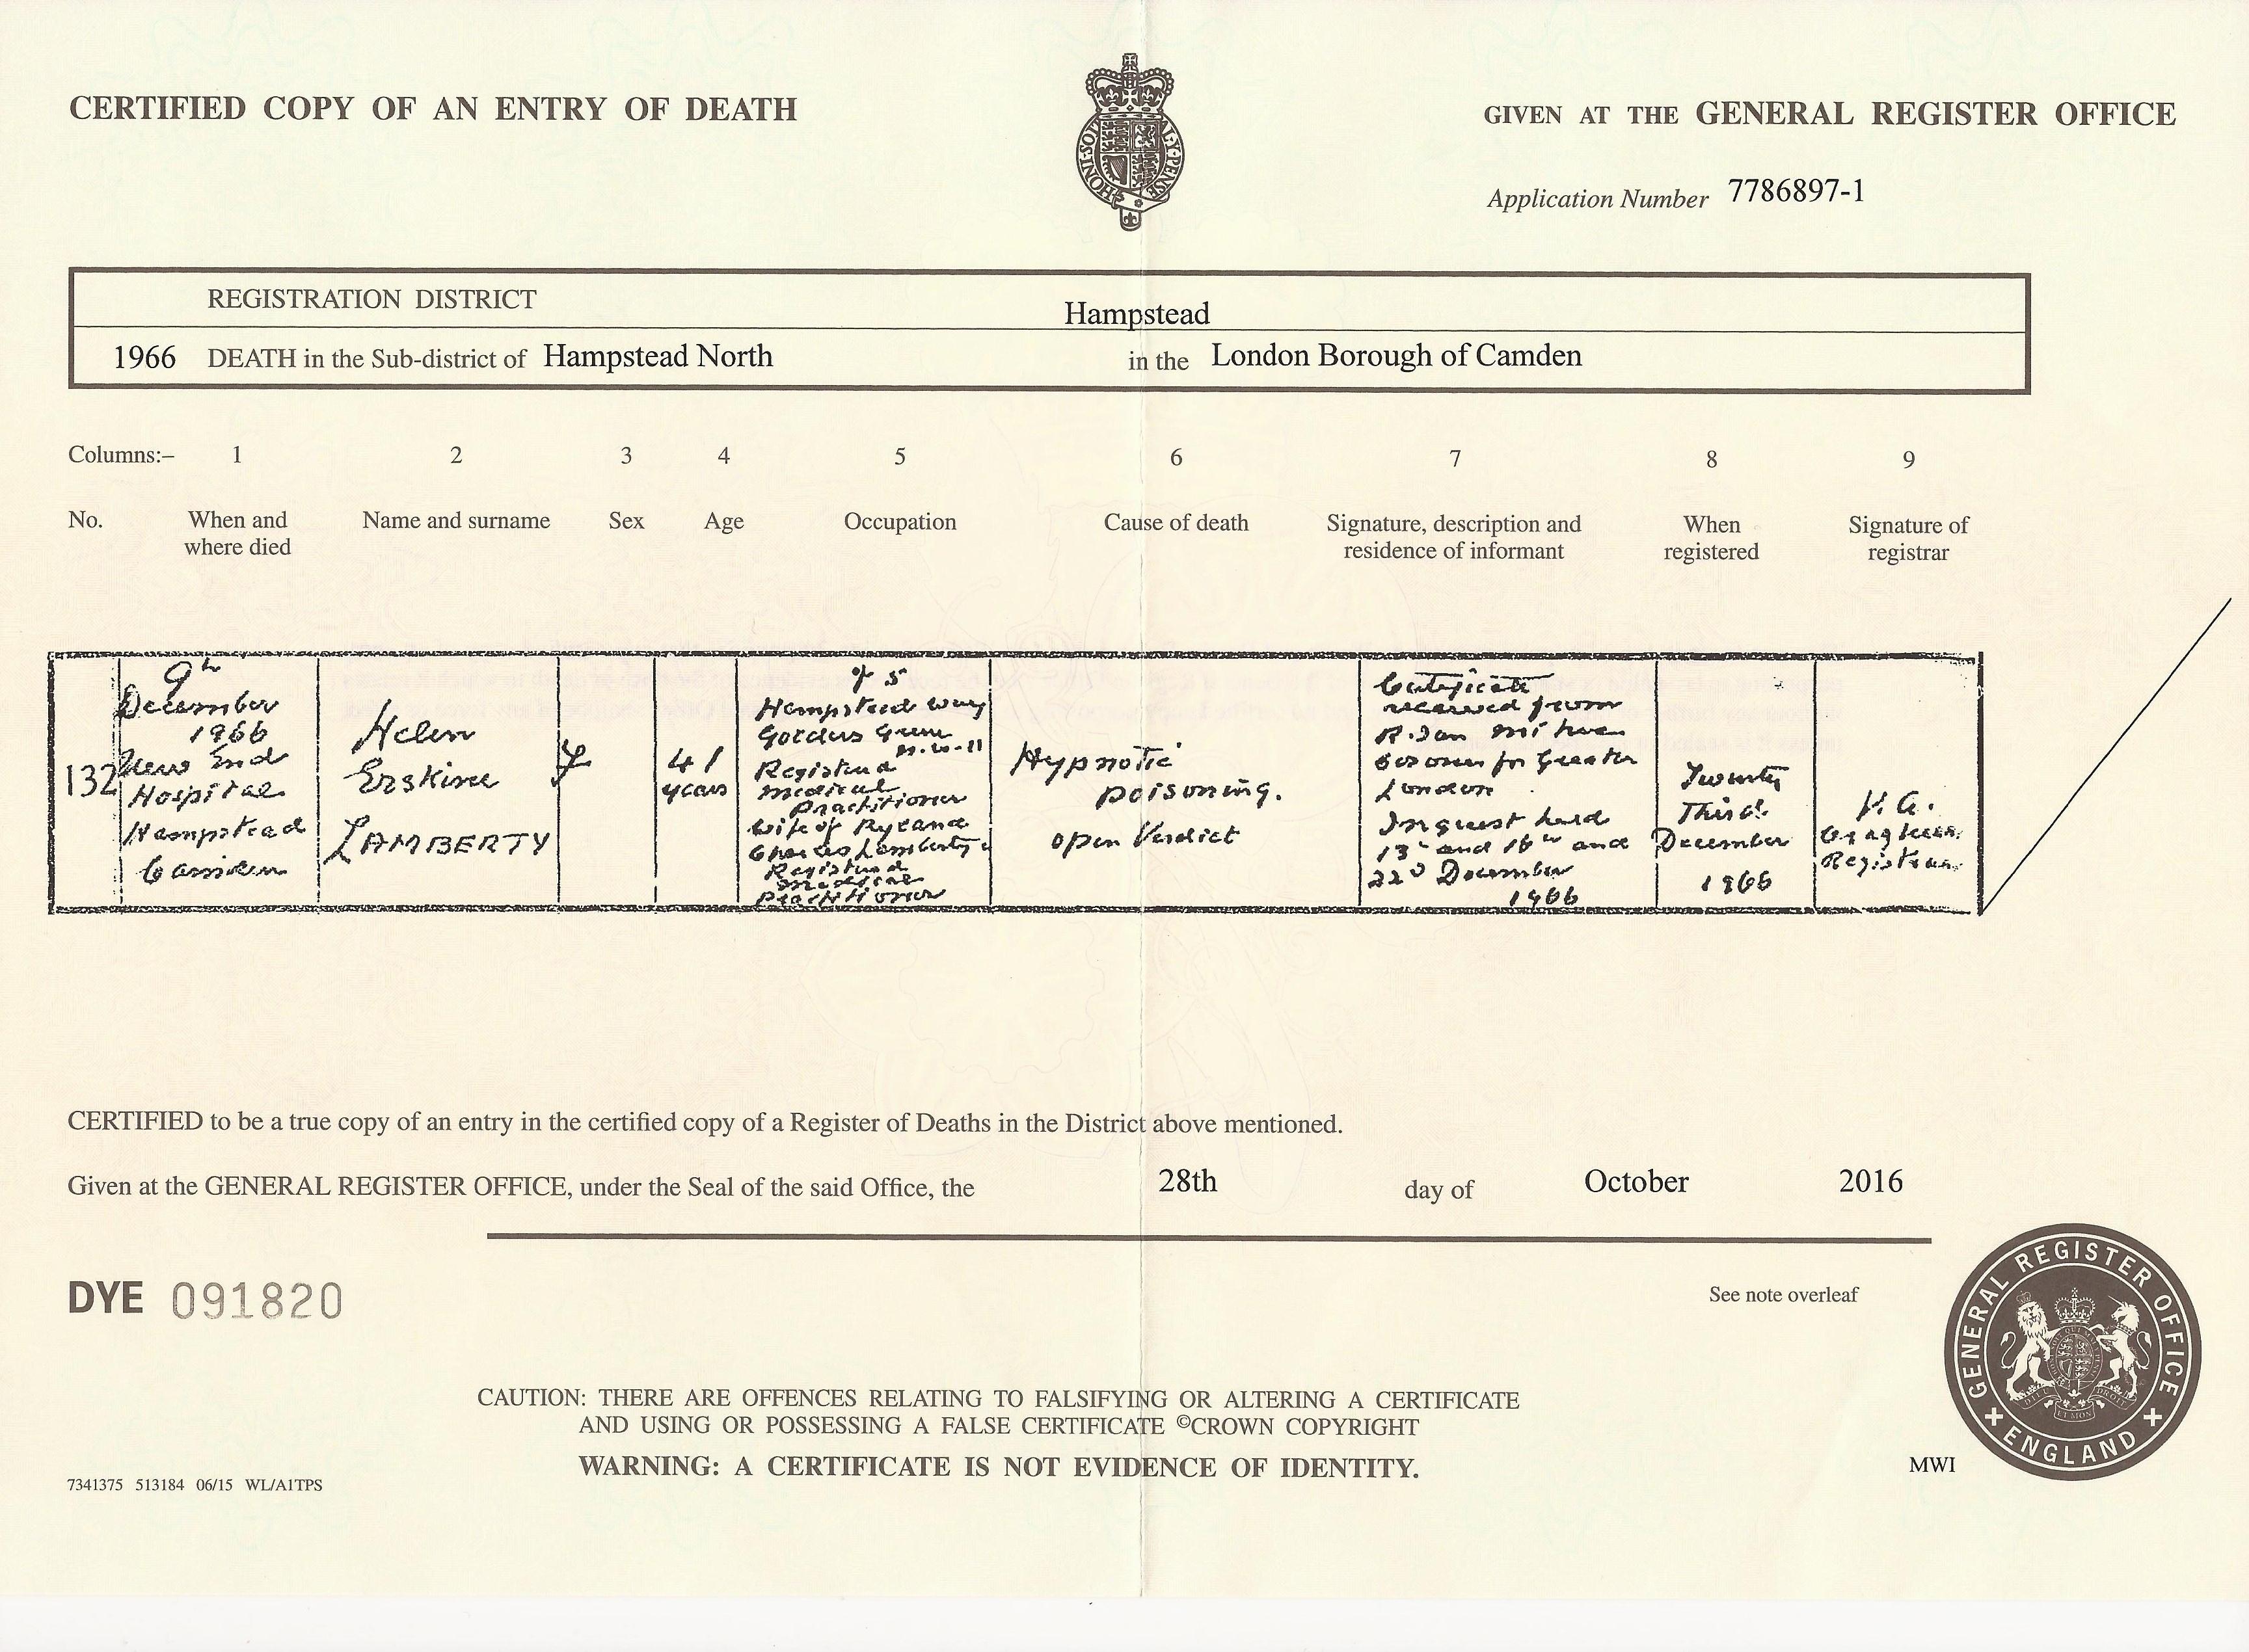 CERTIFIED COPY OF AN ENTRY OF DEATH
GIVEN AT THE GENERAL REGISTER OFFICE
Application Number 7786897-1
REGISTRATION DISTRICT Hampstead
1966 DEATH in the Sub-district of Hampstead North in the London Borough of Camden
Columns:– 1 2 3 4 5 6 7 8 9
No.
When and
where died
Name and surname
Sex
Age
Occupation
Cause of death
Signature, description and
residence of informant
When
registered
Signature of
registrar
132
9th
December
1966
New End
Hospital
Hampstead
Camden
Helen
Erskine
LAMBERTY
F
41
years
of 5
Hampstead Way
Golders Green
N.W.11
Registered
medical
Practitioner
Wife of Ryland
Charles Lamberty a
Registered
medical
practitioner
Hypnotic
poisoning.
open Verdict
Certificate
received from
R. Ian Milne
Coroner for Greater
London
Inquest held
13th and 16th and
22d December
1966
Twenty
Third
December
1966
Registrar
CERTIFIED to be a true copy of an entry in the certified copy of a Register of Deaths in the District above mentioned.
Given at the GENERAL REGISTER OFFICE, under the Seal of the said Office, the 28th day of October 2016
DYE 091820
See note overleaf
GENERAL REGISTER OFFICE
ENGLAND
CAUTION: THERE ARE OFFENCES RELATING TO FALSIFYING OR ALTERING A CERTIFICATE
AND USING OR POSSESSING A FALSE CERTIFICATE ©CROWN COPYRIGHT
WARNING: A CERTIFICATE IS NOT EVIDENCE OF IDENTITY.
7341375 513184 06/15 WL/A1TPS
MWI